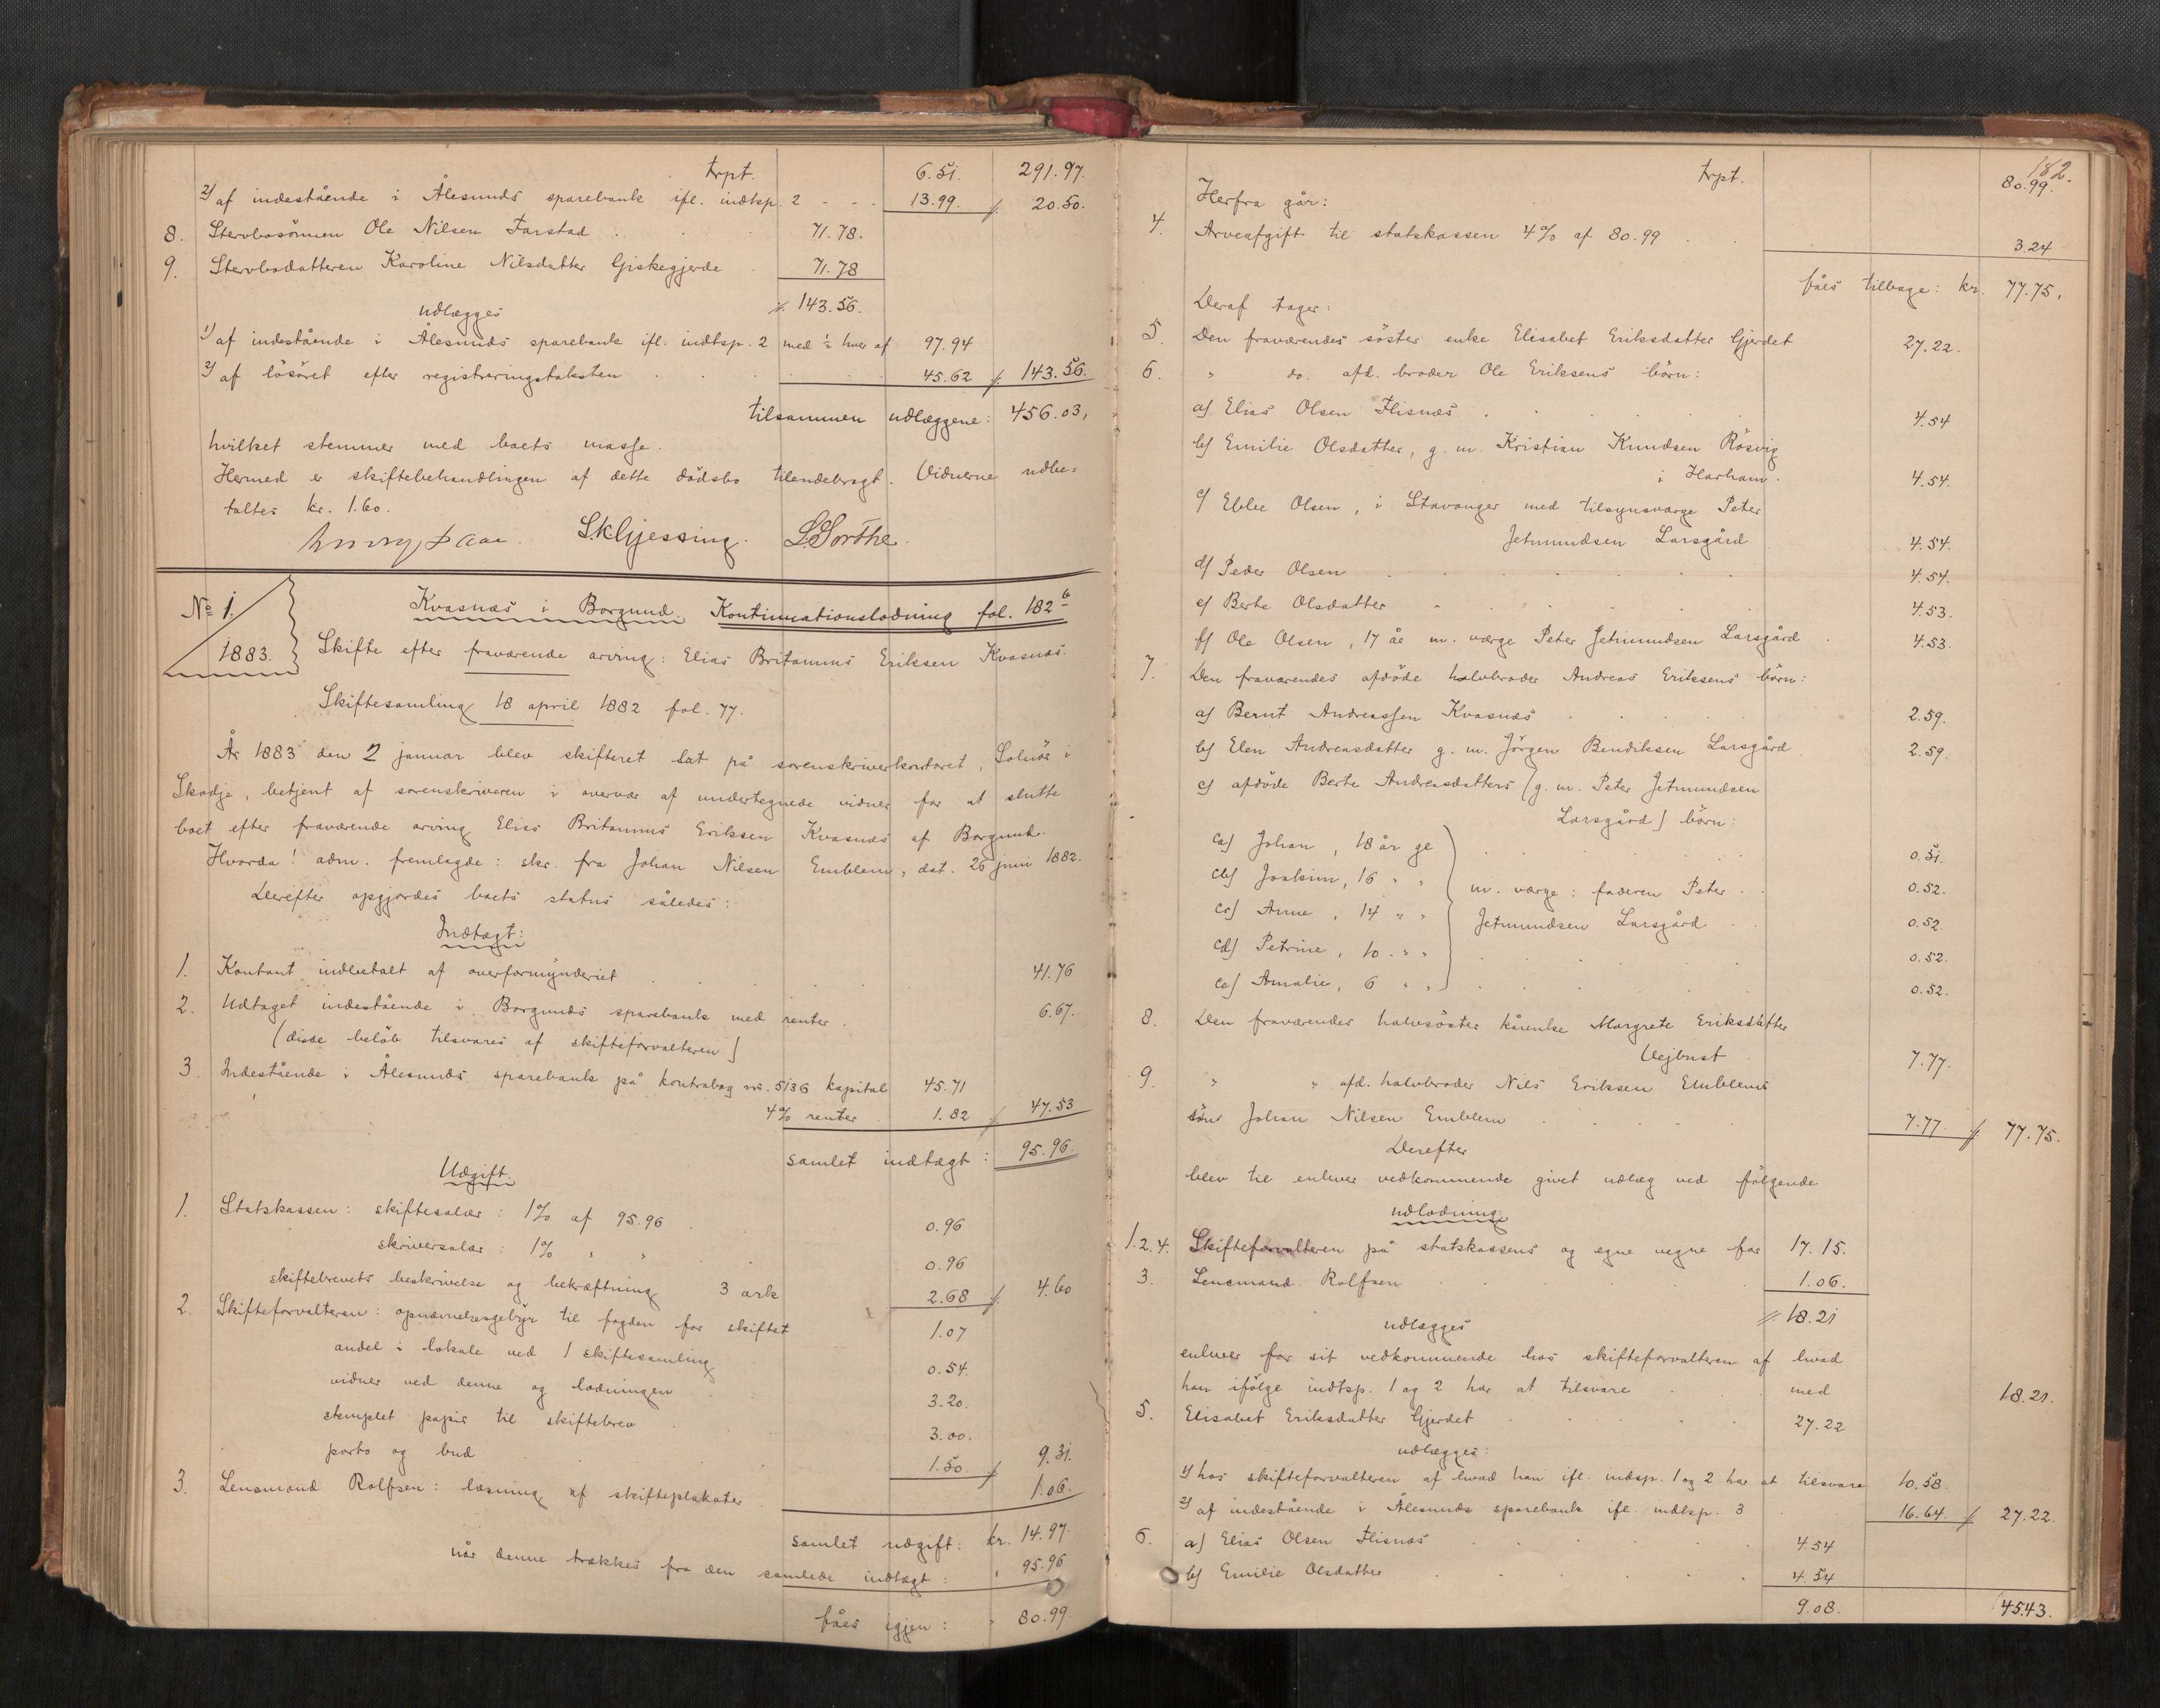 trpt. 6.51. 291.97.
2) af indestående i Ålesunds sparebank ifl. indtsp. 2 - - . 13.99. // 20.50.
8. Stervbosönnen Ole Nilsen Farstad . . . 71.78.
9. Stervbodatteren Karoline Nilsdatter Giskegjerde . 71.78
udlægges // 143.56.
1) af indestående i Ålesunds sparebank ifl. indtsp. 2 med ½ hver af 97.94
2) af lösöret efter registreringstaksten . . . 45.62 // 143.56.
tilsammen udlæggene: 456.03,
hvilket stemmer med boets masse.
Hermed er skiftebehandlingen af dette dödsbo tilendebragt. Vidnerne udbe=
taltes kr. 1.60.
S.K. Gjessing. L. Sorthe.
No 1. Kvasnæs i Borgund. Kontinuationslodning fol. 182 b
1883. Skifte efter fraværende arving: Elias Britannus Eriksen Kvasnæs.
Skiftesamling 18 april 1882 fol. 77.
År 1883 den 2 januar blev skifteret sat på sorenskriverkontoret, Solnör i
Skodje, betjent af sorenskriveren i overvær af undertegnede vidner for at slutte
boet efter fraværende arving Elias Britannus Eriksen Kvasnæs af Borgund.
Hvorda! adm. fremlagde: skr. fra Johan Nilsen Emblem, dat. 26 juni 1882.
Derefter opgjordes boets status således:
Indtægt:
1. Kontant indbetalt af overformynderiet . . . 41.76
2. Udtaget indestående i Borgunds sparebank med renter . 6.67.
(disse beløb tilsvares af skifteforvalteren)
3. Indestående i Ålesunds sparebank på kontrabog no. 5136 kapital 45.71
4% renter 1.82 // 47.53
samlet indtægt: 95.96.
Udgift:
1. Statskassen: skiftesalær: 1% af 95.96 . 0.96
skriversalær: 1% " " . 0.96
skiftebrevets beskrivelse og bekræftning 3 ark 2.68 // 4.60
2. Skifteforvalteren: opnævnelsesgebyr til fogden for skiftet 1.07
andel i lokale ved 1 skiftesamling 0.54.
vidner ved denne og lodningen 3.20.
stemplet papir til skiftebrev . 3.00.
porto og bud . 1.50. // 9.31.
3. Lensmand Rolfsen: læsning af skifteplakater . 1.06.
samlet udgift: kr. 14.97.
når denne trækkes fra den samlede indtægt: " 95.96
fåes igjen: " 80.99.
182.
trpt. 80.99.
Herfra går:
4. Arveafgift til statskassen 4% af 80.99 . 3.24
fåes tilbage: kr. 77.75,
Deraf tager:
5. Den fraværendes söster enke Elisabet Eriksdatter Gjerdet 27.22.
6. " do. afd. broder Ole Eriksens börn:
a) Elias Olsen Flisnæs . . . 4.54
b) Emilie Olsdatter, g. m. Kristian Knudsen Rösvig
i Harham. 4.54.
c) Ebbe Olsen, i Stavanger med tilsynsværge Peter
Jetmundsen Larsgård 4.54.
d) Peder Olsen . . . 4.54.
e) Berte Olsdatter . . . 4.53.
f) Ole Olsen, 17 år m. værge Peter Jetmundsen Larsgård . 4.53.
7. Den fraværendes afdöde halvbroder Andreas Eriksens börn:
a) Bernt Andreassen Kvasnæs . . . 2.59.
b) Elen Andreasdatter g. m. Jörgen Bendiksen Larsgård 2.59.
c) afdöde Berte Andreasdatters (g. m. Peter Jetmundsen
Larsgård) börn:
ca) Johan, 18 år gl . . . 0.51.
cb) Joakim, 16 " " m. værge: faderen Peter . . 0.52.
cc) Anne, 14 " " Jetmundsen Larsgård . . 0.52.
cd) Petrine, 10 . " " . . . 0.52.
ce) Amalie, 6 " " . . . 0.52.
8. Den fraværendes halvsöster kårenke Margrete Eriksdatter
Vejbust 7.77.
9. " " afd. halvbroder Nils Eriksen Emblems
sön Johan Nilsen Emblem . . . 7.77. // 77.75.
Derefter
blev til enhver vedkommende givet udlæg ved fölgende
udlodning:
1.2.4. Skifteforvalteren på statskassens og egne vegne for 17.15.
3. Lensmand Rolfsen . . . 1.06.
udlægges // 18.21
enhver for sit vedkommende hos skifteforvalteren af hvad
han ifölge indtsp. 1 og 2 har at tilsvare . . med 18.21.
5. Elisabet Eriksdatter Gjerdet . . . 27.22
udlægges:
1) hos skifteforvalteren af hvad han ifl. indsp. 1 og 2 har at tilsvare 10.58.
2) af indestående i Ålesunds sparebank ifl. indtsp. 3 . 16.64. // 27.22.
6. a) Elias Olsen Flisnæs . . . 4.54
b) Emilie Olsdatter . . . 4.54
9.08. 45.43.